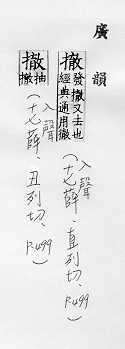 廣韻
撤 發撤又去也
經典通用徹
(入聲
十七薛、直列切、P.499)
撤 抽
撤
(入聲
十七薛、丑列切、P.499)